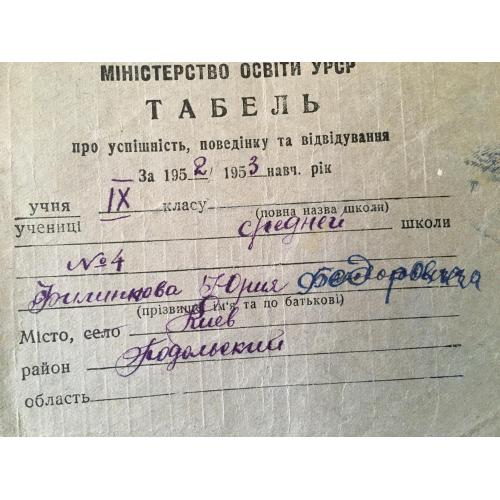 МІНІСТЕРСТВО ОСВІТИ УРСР
ТАБЕЛЬ
про успішність, поведінку та відвідування
За 1952/1953 навч. рік
учня IX класу
учениці средней школи
(повна назва школи)
№4
Филинкова Юрия Фёдоровича
(прізвище, ім'я та по батькові)
Місто, село Киев
район Подольский
область